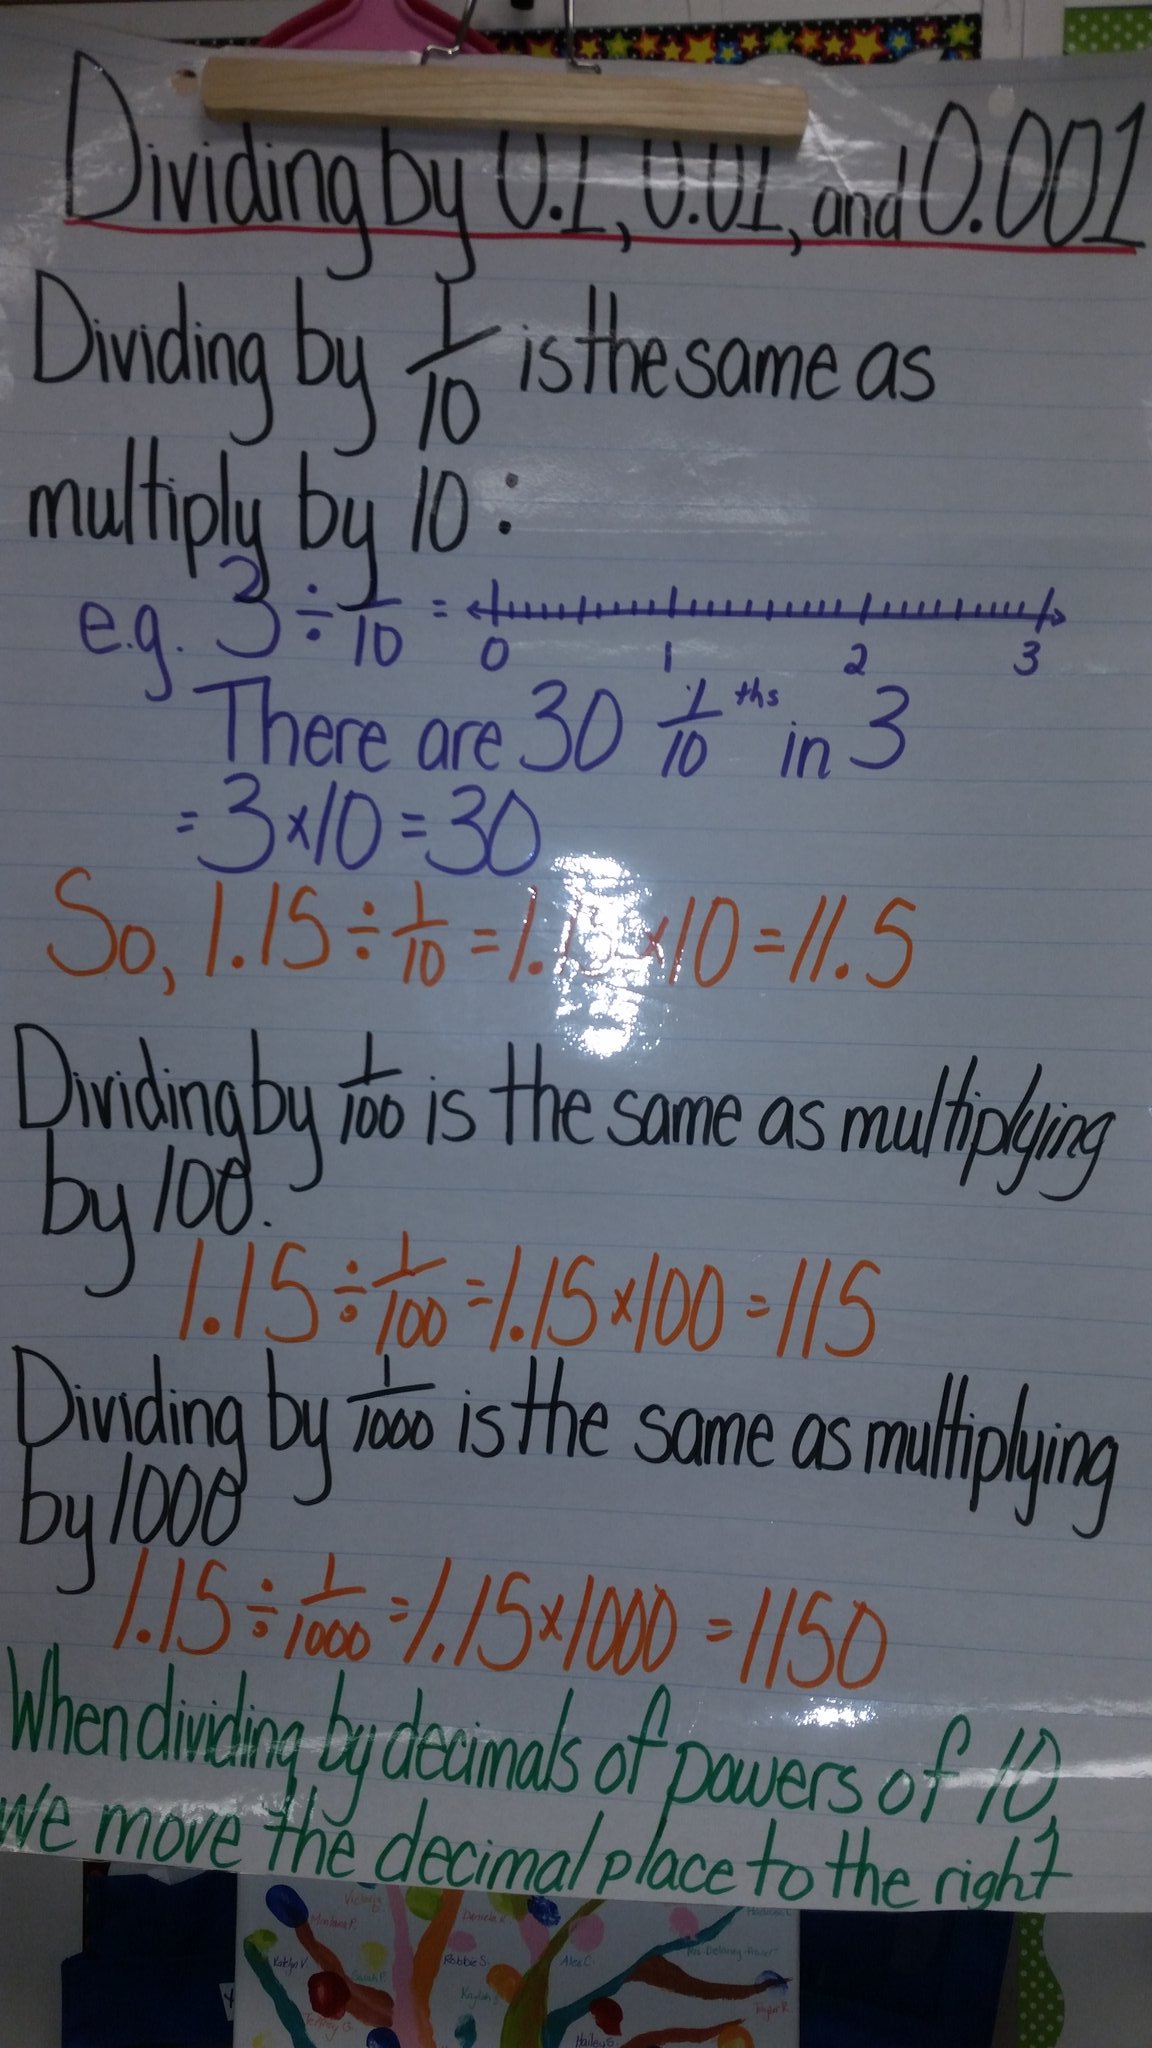 Dividing by 0.1, 0.01, and 0.001
Dividing by 1/10 is the same as
multiply by 10:
e.g. 3 ÷ 1/10 =
0 1 2 3
There are 30 1/10 ths in 3
= 3 × 10 = 30
So, 1.15 ÷ 1/10 = 1.15 × 10 = 11.5
Dividing by 1/100 is the same as multiplying
by 100.
1.15 ÷ 1/100 = 1.15 × 100 = 115
Dividing by 1/1000 is the same as multiplying
by 1000
1.15 ÷ 1/1000 = 1.15 × 1000 = 1150
When dividing by decimals of powers of 10,
we move the decimal place to the right
Victoria
Montana P.
Daniela K.
Katlyn V.
Sarah P.
Robbie S.
Alex C.
Jeffrey G.
Hailey S.